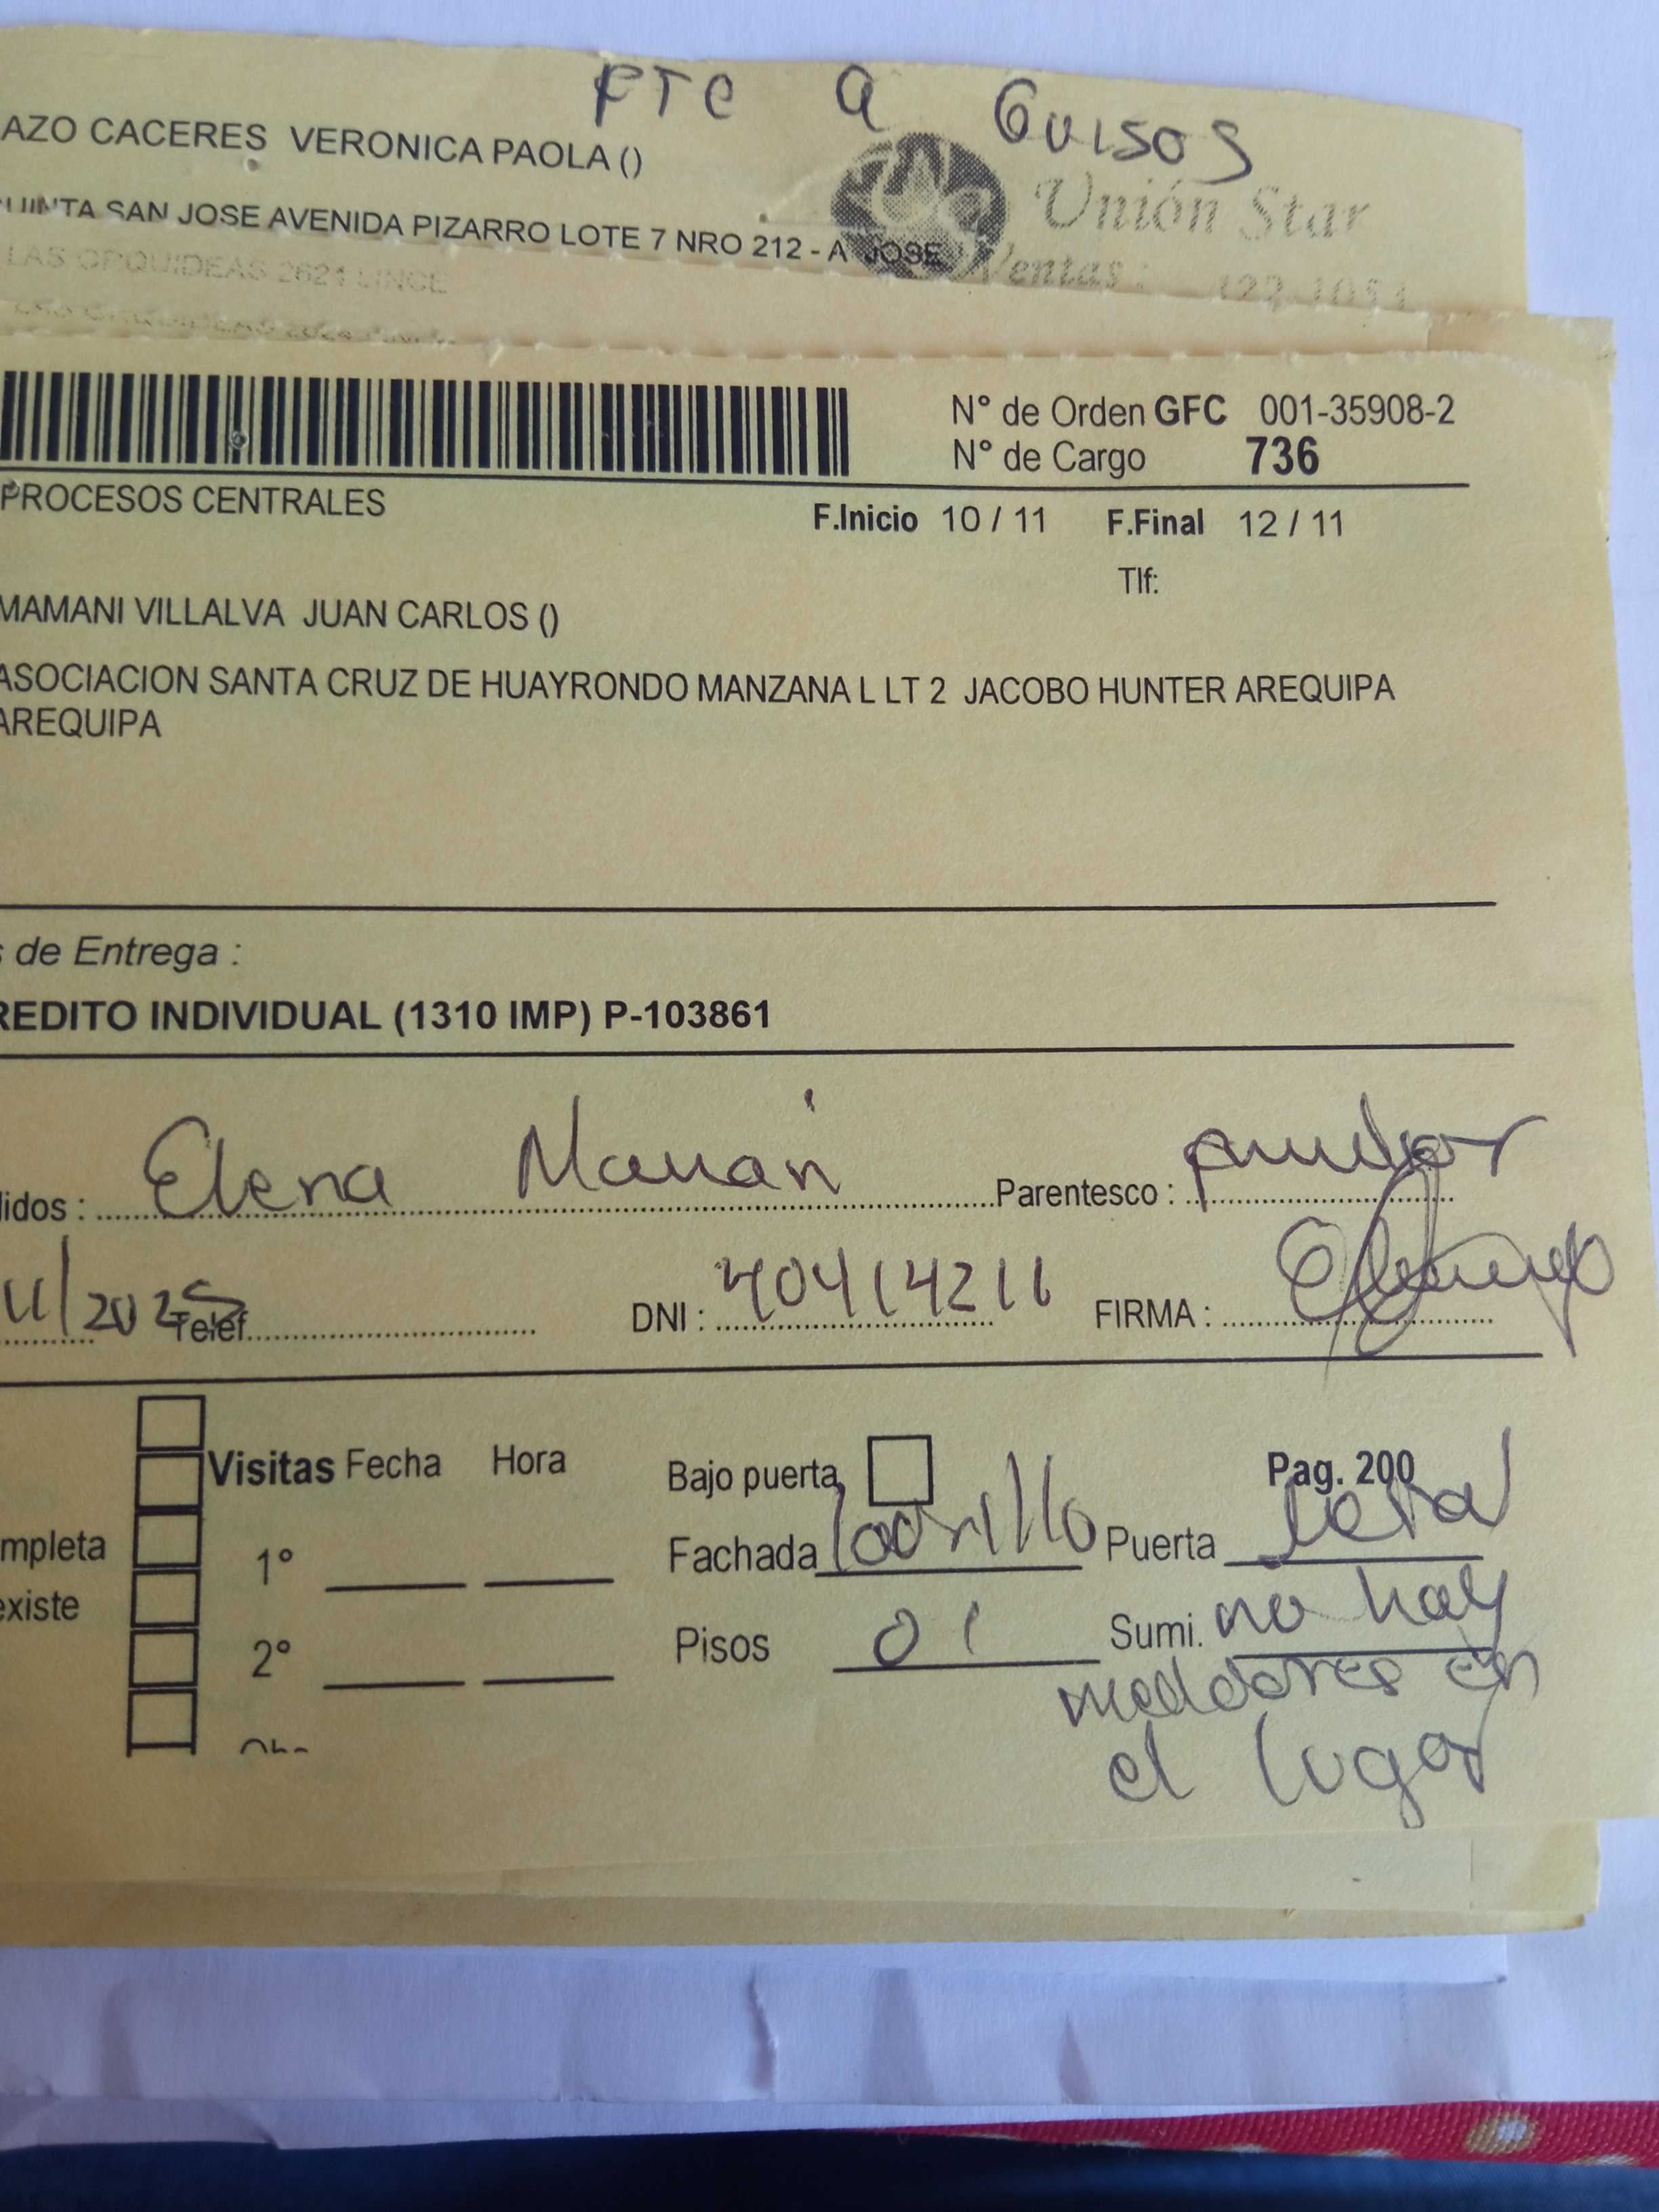 FTE a Guisos
AZO CACERES VERONICA PAOLA ()
UINTA SAN JOSE AVENIDA PIZARRO LOTE 7 NRO 212 - A JOSE
Unión Star
Ventas :
LAS ORQUIDEAS 2621 LINCE
N° de Orden GFC 001-35908-2
N° de Cargo 736
PROCESOS CENTRALES
F.Inicio 10 / 11 F.Final 12 / 11
Tlf:
MAMANI VILLALVA JUAN CARLOS ()
ASOCIACION SANTA CRUZ DE HUAYRONDO MANZANA L LT 2 JACOBO HUNTER AREQUIPA
AREQUIPA
s de Entrega :
REDITO INDIVIDUAL (1310 IMP) P-103861
lidos : Elena Mamani Parentesco :
11/2025 Telef. DNI : 40414211 FIRMA :
Visitas Fecha Hora Bajo puerta Pag. 200
mpleta 1° Fachada ladrillo Puerta metal
existe
2° Pisos 01 Sumi. no hay
medidores en
el lugar